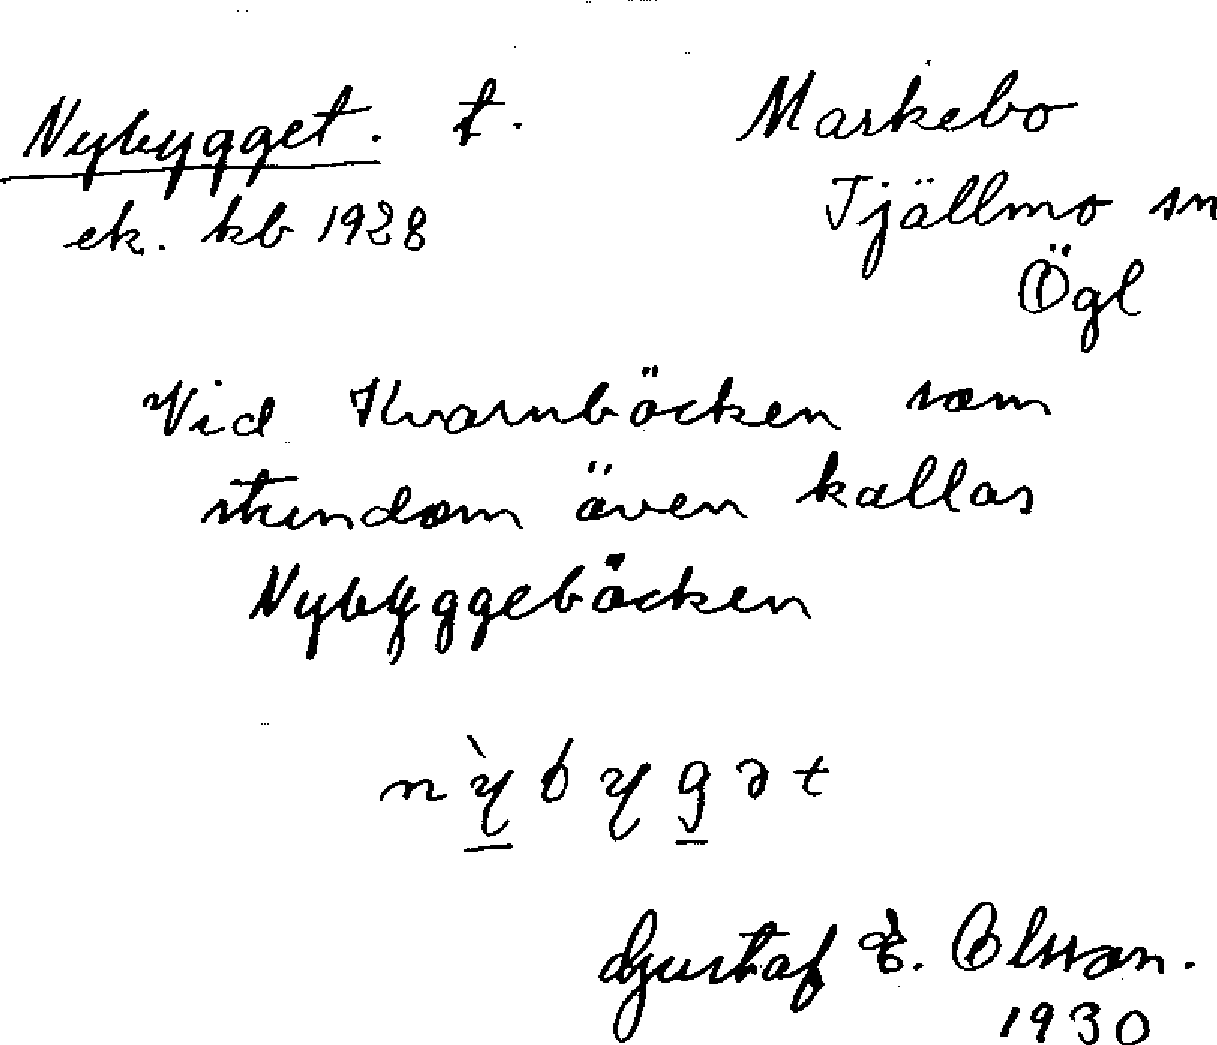 Nybygget. t.
ek. kb 1928
Markebo
Tjällmo sn
Ögl
Vid Kvarnbäcken som
stundom även kallas
Nybyggebäcken
nỳbygət
Gustaf E. Olsson.
1930